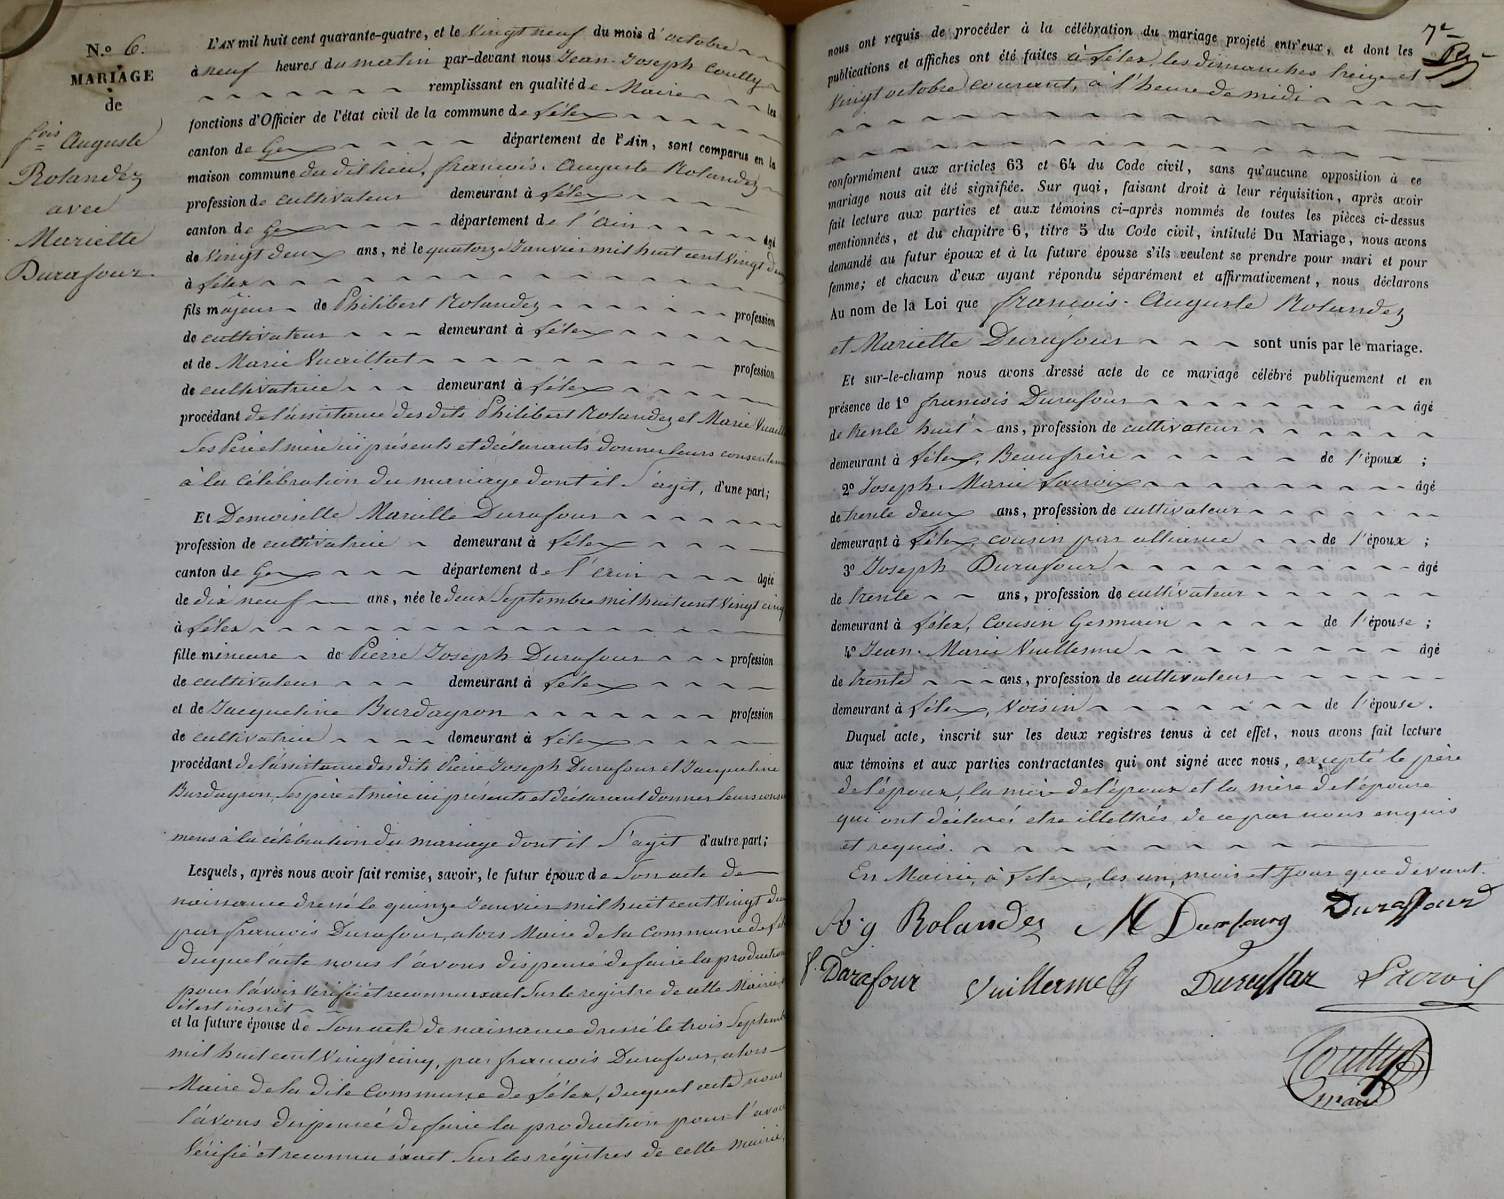 N.o 6.
MARIAGE
de
fois Auguste
Rolandez
avec
Mariette
Durafour.
L'AN mil huit cent quarante-quatre, et le vingt neuf du mois d'octobre
à neuf heures du matin par-devant nous Jean-Joseph Coutty
remplissant en qualité de Maire les
fonctions d'Officier de l'état civil de la commune de Lélex
canton de Gex département de l'Ain, sont comparus en la
maison commune du dit lieu, françois-Auguste Rolandez
profession de cultivateur demeurant à Lélex
canton de Gex département de l'ain âgé
de vingt deux ans, né le quatorze Janvier mil huit cent vingt deux
à Lélex
fils majeur de Philibert Rolandez profession
de cultivateur demeurant à Lélex
et de Marie Vuaillat profession
de cultivatrice demeurant à Lélex
procédant de l'assistance des dits Philibert Rolandez et Marie
Ses Père et mère ici présents et déclarants donner leurs
à la célébration du mariage dont il S'agit, d'une part;
Et Demoiselle Mariette Durafour
profession de cultivatrice demeurant à Lélex
canton de Gex département de l'ain âgée
de dix neuf ans, née le deux Septembre mil huit cent vingt cinq
à Lélex
fille mineure de Pierre Joseph Durafour profession
de cultivateur demeurant à Lélex
et de Jacqueline Burdayron profession
de cultivatrice demeurant à Lélex
procédant de l'assistance des dits Pierre Joseph Durafour et Jacqueline
Burdayron, Ses père et mère ici présents et déclarant donner leurs
mens à la célébration du mariage dont il S'agit d'autre part;
Lesquels, après nous avoir fait remise, savoir, le futur époux de Son acte de
naissance dressé le quinze Janvier mil huit cent vingt deux
par françois Durafour, alors Maire de la Commune de
duquel acte nous l'avons dispensé de faire la production
pour l'avoir vérifié et reconnu exact Sur le registre de cette Mairie
où est inscrit
et la future épouse de Son acte de naissance dressé le trois Septembre
mil huit cent vingt cinq, par françois Durafour, alors
Maire de la dite Commune de Lélex, duquel acte nous
l'avons dispensée de faire la production pour l'avoir
Vérifié et reconnu exact Sur les régistres de cette mairie,
7e
nous ont requis de procéder à la célébration du mariage projeté entr'eux, et dont les
publications et affiches ont été faites à Lélex, les dimanches treize et
Vingt octobre courant, à l'heure de midi
conformément aux articles 63 et 64 du Code civil, sans qu'aucune opposition à ce
mariage nous ait été signifiée. Sur quoi, faisant droit à leur réquisition, après avoir
fait lecture aux parties et aux témoins ci-après nommés de toutes les pièces ci-dessus
mentionnées, et du chapitre 6, titre 5 du Code civil, intitulé Du Mariage, nous avons
demandé au futur époux et à la future épouse s'ils veulent se prendre pour mari et pour
femme; et chacun d'eux ayant répondu séparément et affirmativement, nous déclarons
Au nom de la Loi que françois-Auguste Rolandez
et Mariette Durafour sont unis par le mariage.
Et sur-le-champ nous avons dressé acte de ce mariage célébré publiquement et en
présence de 1o françois Durafour âgé
de trente huit ans, profession de cultivateur
demeurant à Lélex, Beaufrère de l'époux ;
2o Joseph-Marie Lacroix âgé
de trente deux ans, profession de cultivateur
demeurant à Lélex, cousin par alliance de l'époux ;
3o Joseph Durafour âgé
de trente ans, profession de cultivateur
demeurant à Lélex, Cousin Germain de l'épouse ;
4o Jean-Marie Vuillerme âgé
de trente ans, profession de cultivateur
demeurant à Lélex, Voisin de l'épouse.
Duquel acte, inscrit sur les deux registres tenus à cet effet, nous avons fait lecture
aux témoins et aux parties contractantes qui ont signé avec nous, excepté le père
de l'époux, la mère de l'époux et la mère de l'épouse
qui ont déclaré être illettrés, de ce par nous enquis
et requis.
En Mairie, à Lélex, les an, mois et Jour que devant.
A.g Rolandez M Durafourg Duraffourd
f. Darafour Vuillerme Duraffour Lacroix
Coutty
maire